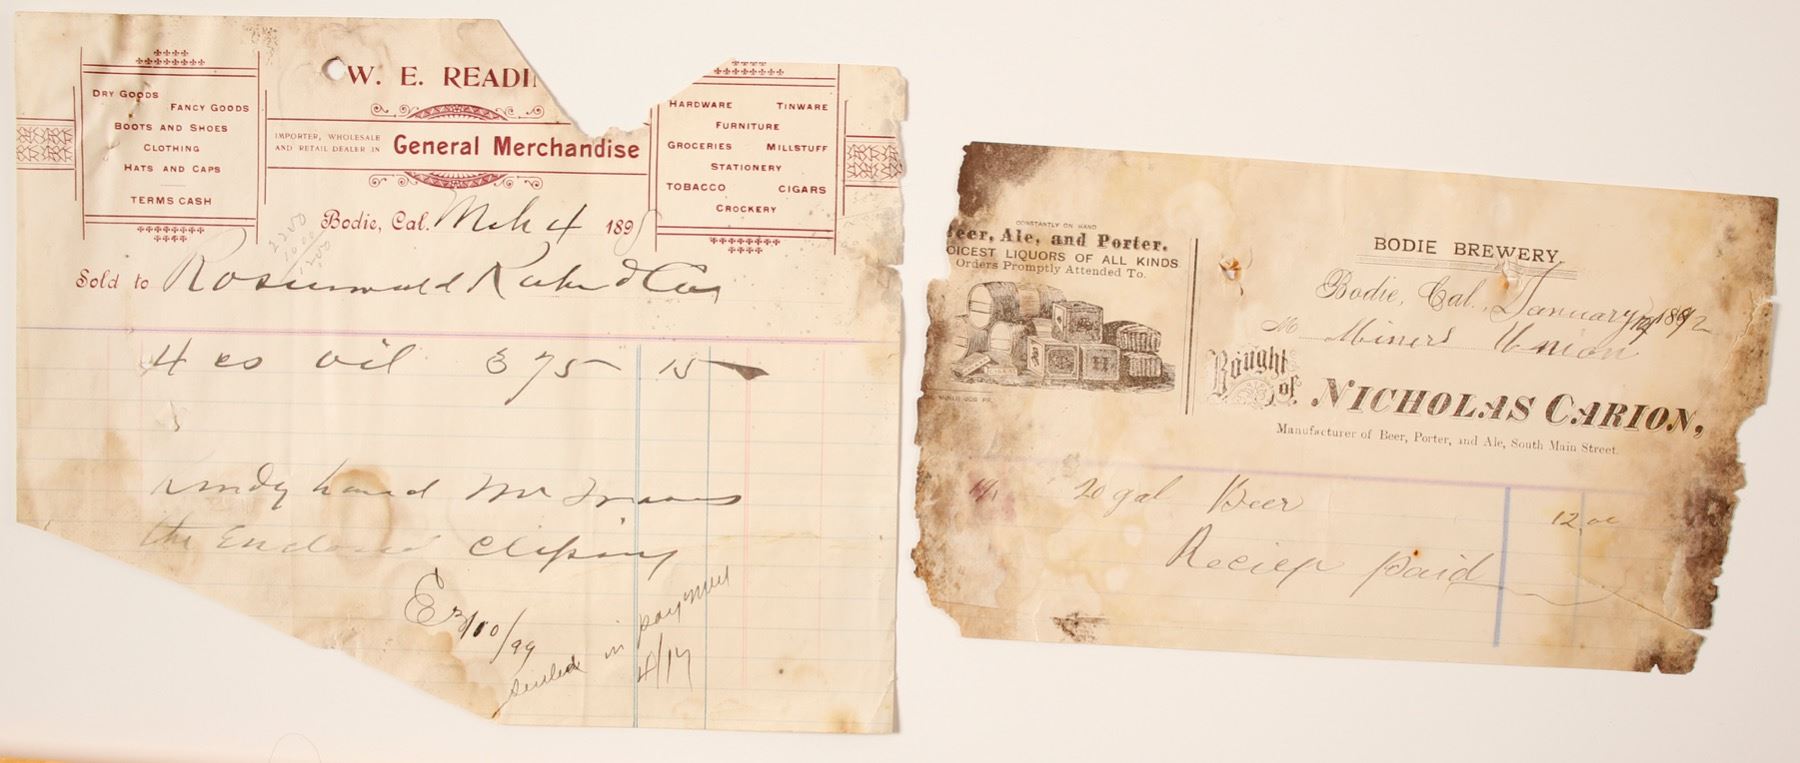 W. E. READI
DRY GOODS
FANCY GOODS
BOOTS AND SHOES
CLOTHING
HATS AND CAPS
TERMS CASH
IMPORTER, WHOLESALE
AND RETAIL DEALER IN
General Merchandise
HARDWARE TINWARE
FURNITURE
GROCERIES MILLSTUFF
STATIONERY
TOBACCO CIGARS
CROCKERY
Bodie, Cal. Mch 4 189
2200
1000
1200
Sold to & Co
4 cs oil 3 75 15
the Enclosed Clipping
E 3/10/99
in payment
4/17
CONSTANTLY ON HAND
eer, Ale, and Porter.
OICEST LIQUORS OF ALL KINDS
Orders Promptly Attended To.
BODIE BREWERY.
Bodie, Cal., January 1892
M Miners Union
Bought of NICHOLAS CARION,
Manufacturer of Beer, Porter, and Ale, South Main Street.
20 gal Beer 12 00
Reciep paid